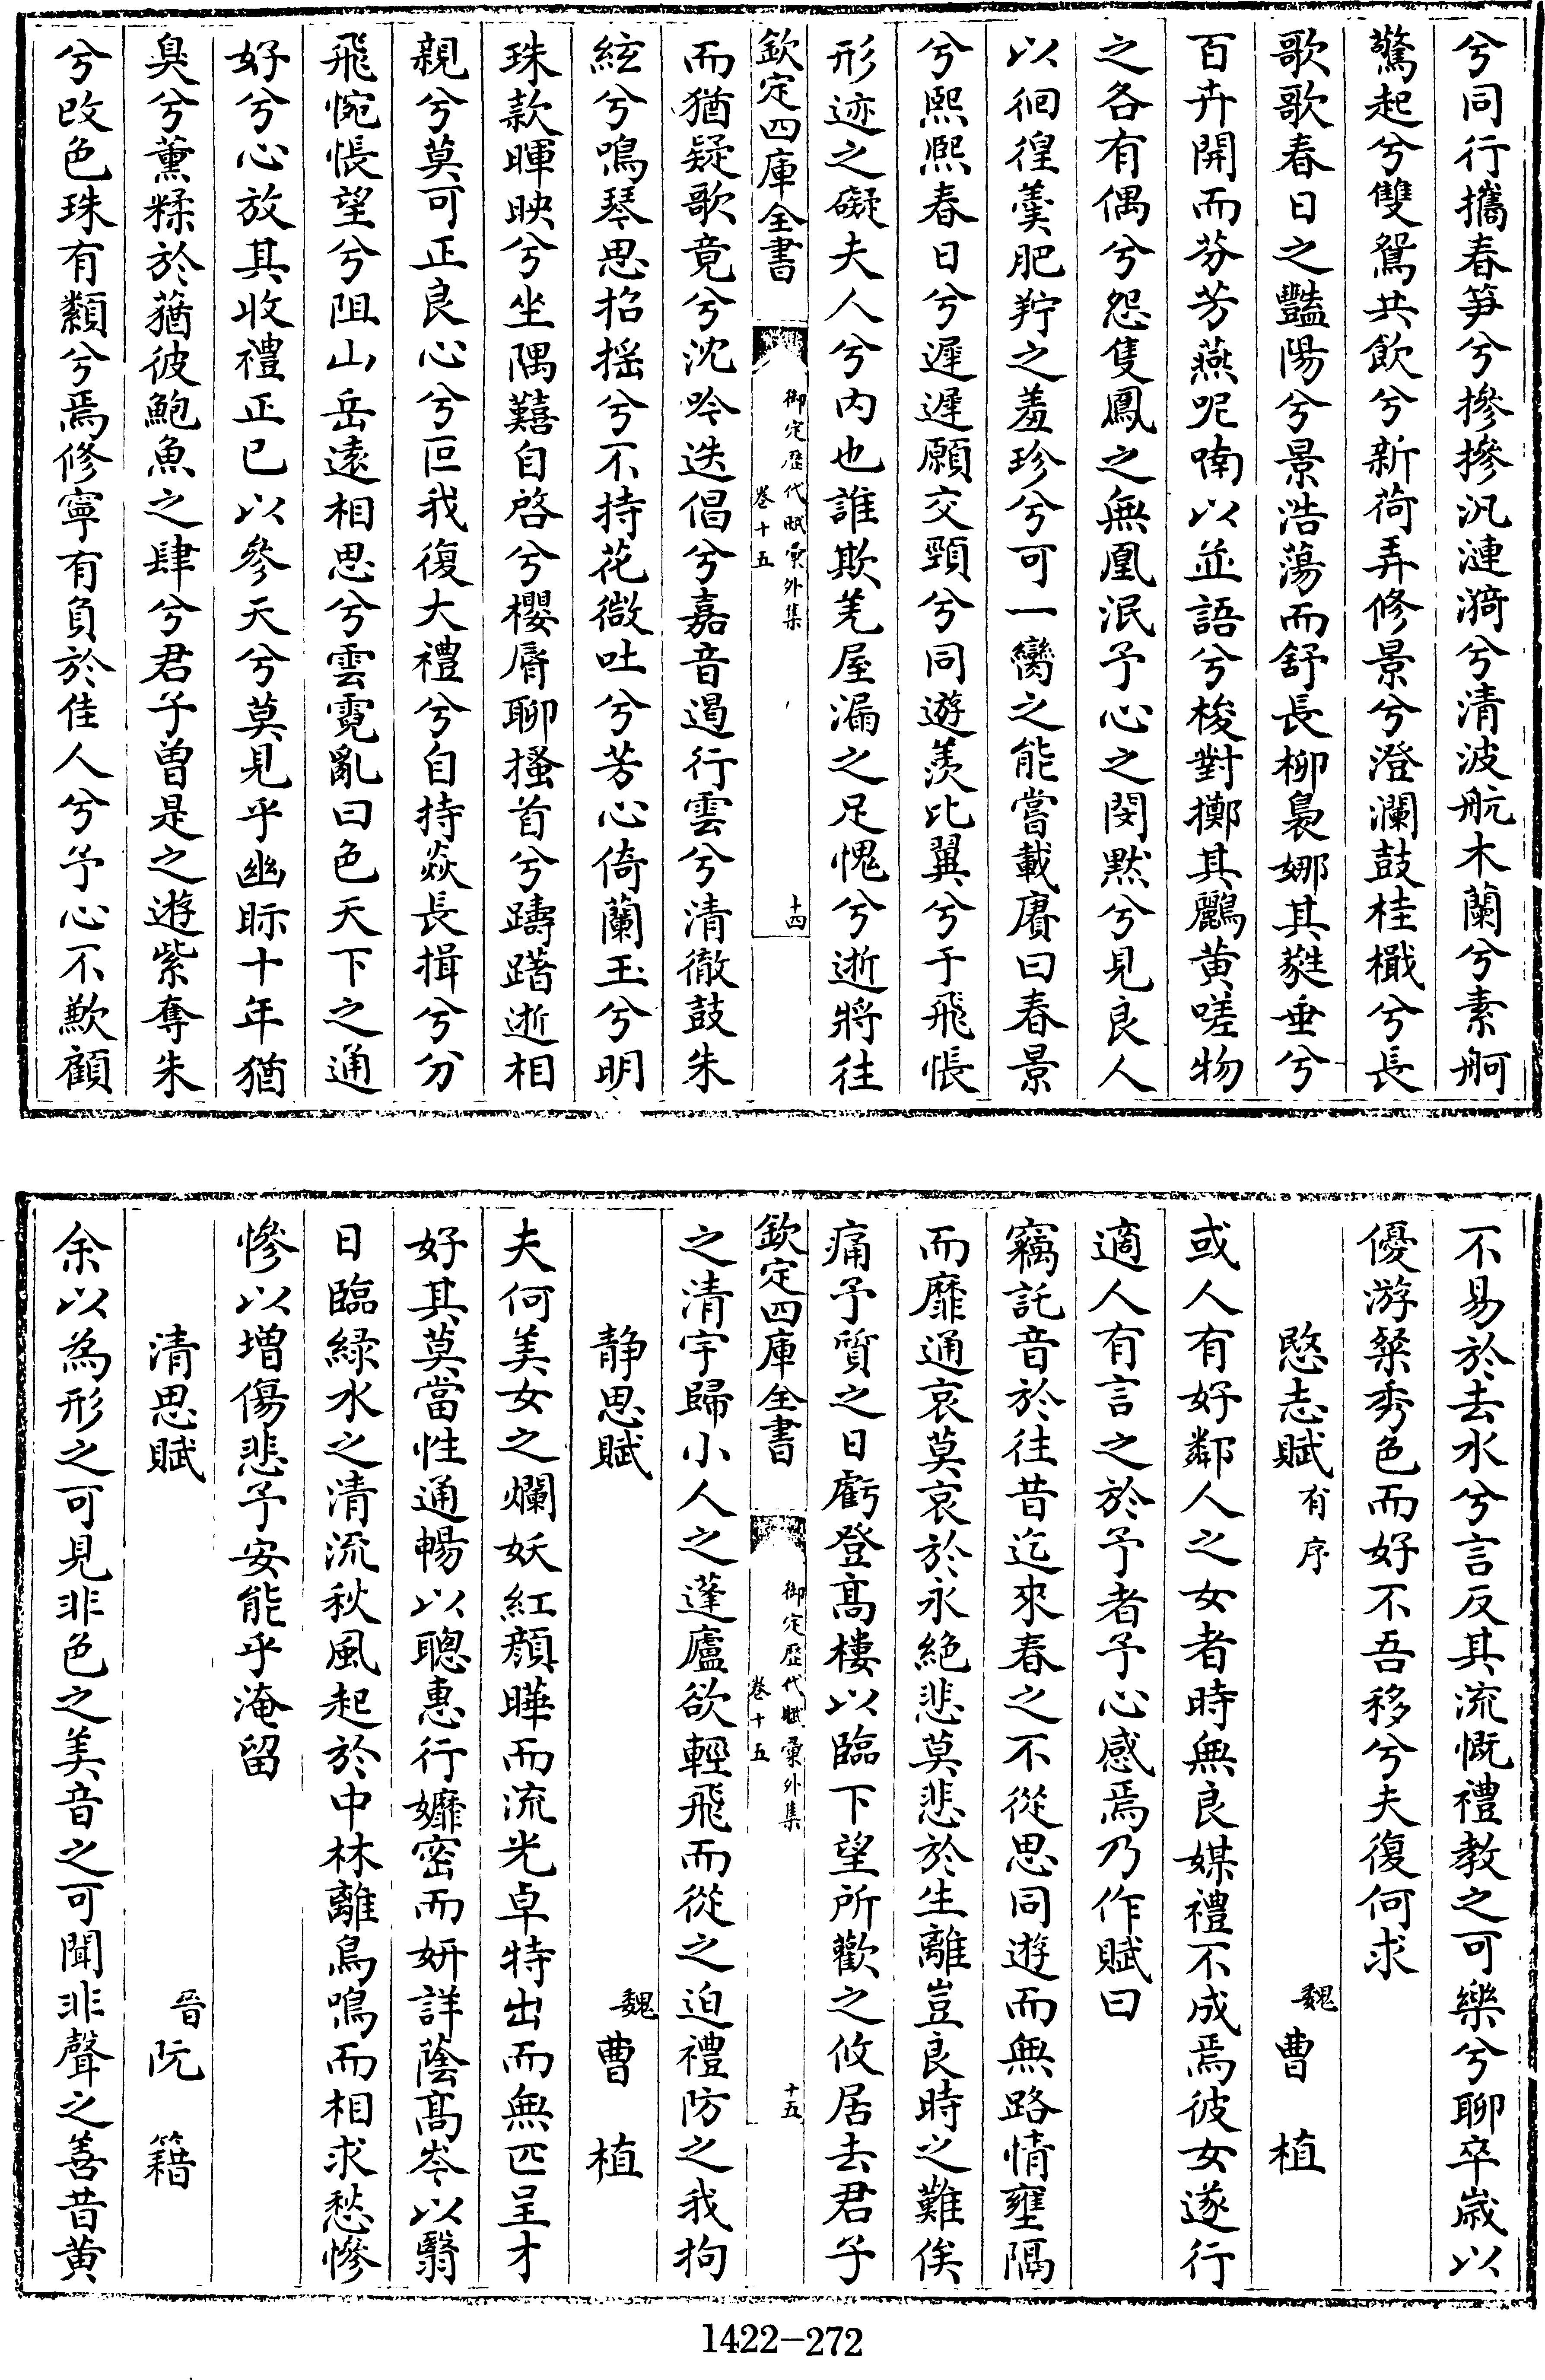 兮同行攜春笋兮摻摻汎漣漪兮清波航木蘭兮素舸
驚起兮雙鴛共飲兮新荷弄修景兮澄瀾鼓桂檝兮長
歌歌春日之豔陽兮景浩蕩而舒長柳裊娜其蕤垂兮
百卉開而芬芳燕呢喃以並語兮梭對擲其鸝黃嗟物
之各有偶兮怨隻鳳之無凰泯予心之閔黙兮見良人
以徊徨羹肥羜之羞珍兮可一臠之能嘗載賡曰春景
兮熙熙春日兮遲遲願交頸兮同遊羨比翼兮于飛悵
形迹之礙夫人兮内也誰欺羌屋漏之足愧兮逝將往
欽定四庫全書
御定歷代賦彙外集
卷十五
十四
而猶疑歌竟兮沈吟迭倡兮嘉音遏行雲兮清徹鼓朱
絃兮鳴琴思招搖兮不持花微吐兮芳心倚蘭玉兮明
珠款暉映兮坐隅囏自啓兮櫻脣聊搔首兮躊躇逝相
親兮莫可正良心兮叵我復大禮兮自持焱長揖兮分
飛惋悵望兮阻山岳遠相思兮雲霓亂曰色天下之通
好兮心放其收禮正已以參天兮莫見乎幽眎十年猶
臭兮薰糅於蕕彼鮑魚之肆兮君子曾是之遊紫奪朱
兮改色珠有纇兮焉修寧有負於佳人兮予心不歉顧
不易於去水兮言反其流慨禮教之可樂兮聊卒歲以
優游粲秀色而好不吾移兮夫復何求
愍志賦有序 魏曹植
或人有好鄰人之女者時無良媒禮不成焉彼女遂行
適人有言之於予者予心感焉乃作賦曰
竊託音於往昔迄來春之不從思同遊而無路情壅隔
而靡通哀莫哀於永絕悲莫悲於生離豈良時之難俟
痛予質之日虧登髙樓以臨下望所歡之攸居去君子
欽定四庫全書
御定歷代賦彙外集
卷十五
十五
之清宇歸小人之蓬廬欲輕飛而從之迫禮防之我拘
静思賦 魏曹植
夫何美女之爛妖紅顔曄而流光卓特出而無匹呈才
好其莫當性通暢以聰惠行孊密而妍詳蔭髙岑以翳
日臨緑水之清流秋風起於中林離鳥鳴而相求愁慘
慘以增傷悲予安能乎淹留
清思賦 晉阮籍
余以為形之可見非色之美音之可聞非聲之善昔黄
1422-272